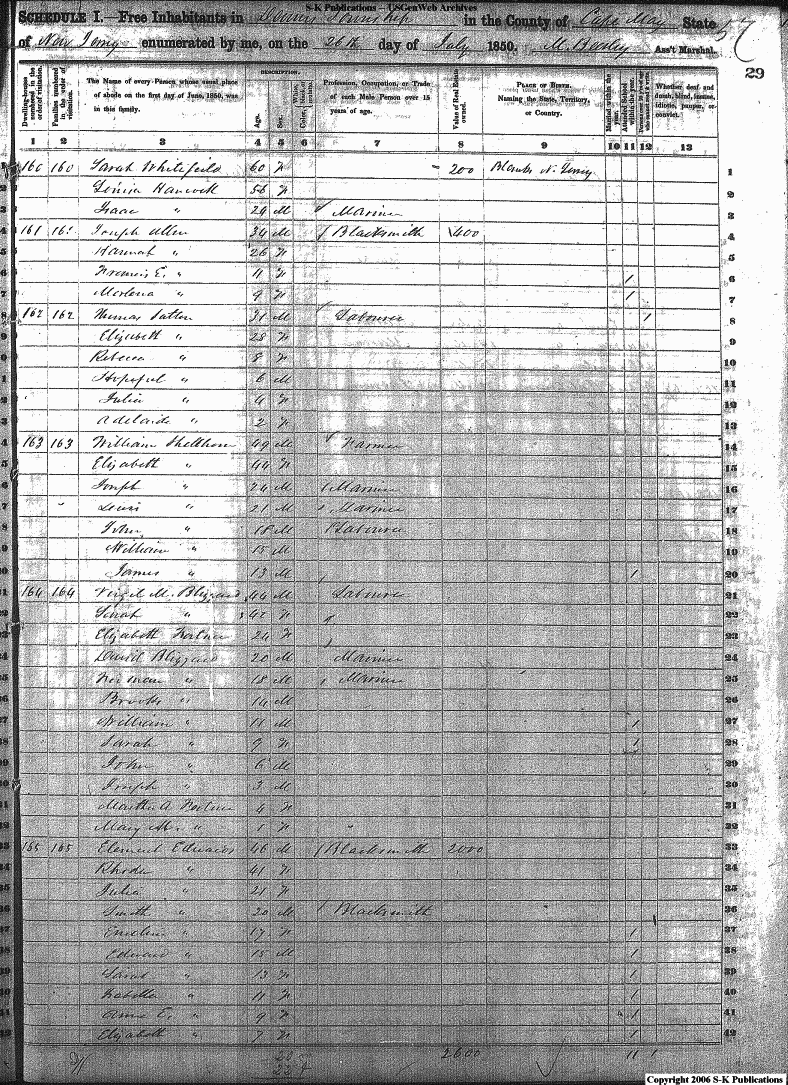 S-K Publications - USGenWeb Archives
SCHEDULE I.—Free Inhabitants in Township in the County of Cape May State 57
of New Jersey enumerated by me, on the 26th day of July 1850. Ass't Marshal.
29
Dwelling-houses numbered in the order of visitation.
Families numbered in the order of visitation.
The Name of every Person whose usual place of abode on the first day of June, 1850, was in this family.
DESCRIPTION.
Age.
Sex.
Profession, Occupation, or Trade of each Male Person over 15 years of age.
Value of Real Estate owned.
PLACE OF BIRTH. Naming the State, Territory, or Country.
Married within the year.
Attended School within the year.
Whether deaf and dumb, blind, insane, idiotic, pauper, or convict.
1 2 3 4 5 6 7 8 9 10 11 12 13
160 160 Sarah 60 F 200 N. Jersey 1
Louisa Hancock 56 F 2
Isaac " 24 M Mariner 3
161 Joseph 34 M Blacksmith 400 4
Hannah " 26 F 5
Francis E. " 11 F 1 6
" 9 F 1 7
162 162 Thomas 31 M Labourer 1 8
Elizabeth " 28 F 9
Rebecca " 8 F 10
Hopeful " 6 M 11
Julia " 4 F 12
Adelaide " 2 F 13
163 163 William 49 M Farmer 14
Elizabeth " 44 F 15
Joseph " 24 M Mariner 16
Lewis " 21 M Mariner 17
John " 18 M Labourer 18
William " 15 M 19
James " 13 M 1 20
164 164 Virgil M. Blizzard 44 M Labourer 21
Sarah " 42 F 22
Elizabeth 24 F 23
David Blizzard 20 M Mariner 24
" 18 M Mariner 25
Brooks " 14 M 26
William " 11 M 1 27
Sarah " 9 F 1 28
John " 6 M 29
Joseph " 3 M 30
Martha A. 4 F 31
Mary " 1 F 32
165 165 Clement Edwards 46 M Blacksmith 2000 33
Rhoda " 41 F 34
Julia " 21 F 35
Smith " 20 M Blacksmith 36
Emeline " 17 F 1 37
Edward " 15 M 1 38
Sarah " 13 F 1 39
" 11 F 1 40
Anna E. " 9 F 1 41
Elizabeth " 7 F 1 42
2600 11 1
Copyright 2006 S-K Publications